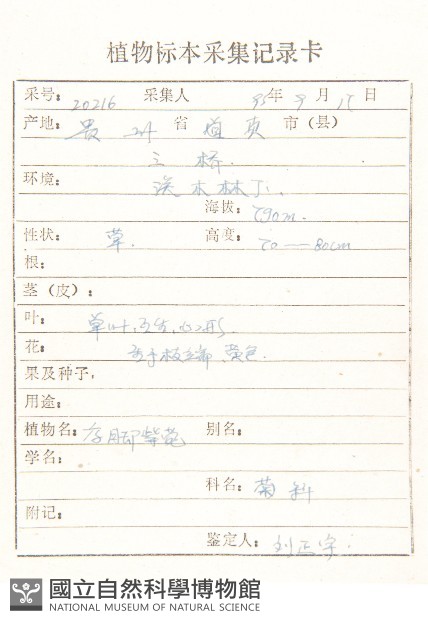 植物标本采集记录卡
采号: 20216 采集人 年 9 月 15 日
产地: 贵州 省 道真 市(县)
三桥.
环境: 木林下.
海拔: 790m.
性状: 草. 高度: 70——80cm
根:
茎(皮):
叶: 单叶,互生,心形.
花: 枝端 黄色.
果及种子,
用途:
植物名: 脚紫菀 别名:
学名:
科名: 菊科
附记:
鉴定人: 刘正宇.
國立自然科學博物館
NATIONAL MUSEUM OF NATURAL SCIENCE